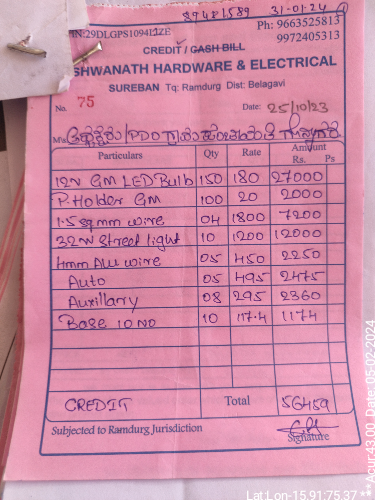 89481589 31-01-24
IN:29DLGPS1094L1ZE Ph: 9663525813
9972405313
CREDIT / CASH BILL
SHWANATH HARDWARE & ELECTRICAL
SUREBAN Tq: Ramdurg Dist: Belagavi
No. 75 Date: 25/10/23
M/s PDO
Particulars Qty Rate Amount
Rs. Ps
12W GM LED Bulb 150 180 27000
P.Holder GM 100 20 2000
1.5 sqmm wire 04 1800 7200
32W Street light 10 1200 12000
4mm Alu wire 05 450 2250
Auto 05 495 2475
Auxillary 08 295 2360
Base 10 NO 10 117.4 1174
CREDIT Total 56459
Subjected to Ramdurg Jurisdiction
Signature
Lat:Lon-15.91:75.37 ***Acur:43.00 Date:05-02-2024